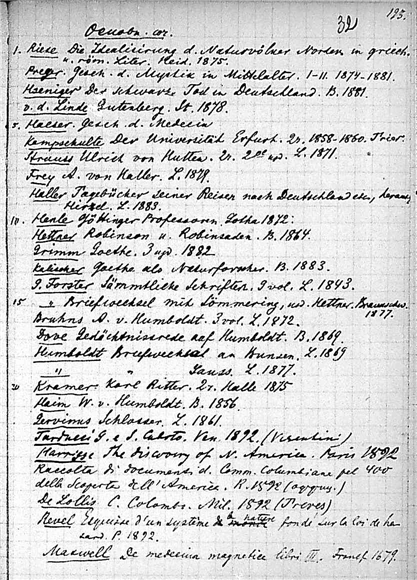 195.
Основн. соч. 32
1. Riese Die Idealisirung d. Naturvölker Norden in griech.
u. röm. Liter. Heid. 1875.
Preger. Gesch. d. Mystik in Mittelalter. I-II. 1874-1881.
Hoeniger Der schwarze Tod in Deutschland. B. 1881.
v. d. Linde Gutenberg. St. 1878.
5. Haeser. Gesch. d. Medecin
Kampschulte Der Universität Erfurt. 2v. 1858-1860. Trier.
Strauss Ulrich von Hutten. 2v. L. 1871.
Frey A. von Haller. L. 1879.
Haller Tagebücher seiner Reisen nach Deutschland etc, herausg
Hirzel. L. 1883.
10. Henle Göttinger Professoren. Gotha 1872.
Hettner Robinson u. Robinsaden. B. 1864.
Grimm Goethe. 3 изд. 1882
Kalischer Goethe als Naturforscher. B. 1883.
G. Forster Sämmtliche Schriften. 9 vol. L. 1843.
15 " Briefwechsel mit Sömmering, изд. Hettner. Braunschw.
1877.
Bruhns A. v. Humboldt. 3 vol. L. 1872.
Dove Gedächtnissrede auf Humboldt. B. 1869.
Humboldt Briefwechsel an Bunsen. L. 1869
" " Gauss. L. 1877.
20 Kramer Karl Ritter. 2v. Halle 1875
Haim W. v. Humboldt. B. 1856.
Gervinus Schlosser. L. 1861.
Tarducci G. e S. Caboto. Ven. 1892. (Visentini)
Harrisse The discovery of N. America. Paris 1892
Raccolta di documenti d. Comm. Columbiana pel 400
della Scoperta dell'America. R. 1892
De Lollis C. Colombo. Mil. 1892 (Treves)
Revel Esquisse d'un système de la nature fondé sur la loi de ha-
sard. P. 1892.
Maxwell De medecina magnetica libri III. Francf. 1679.